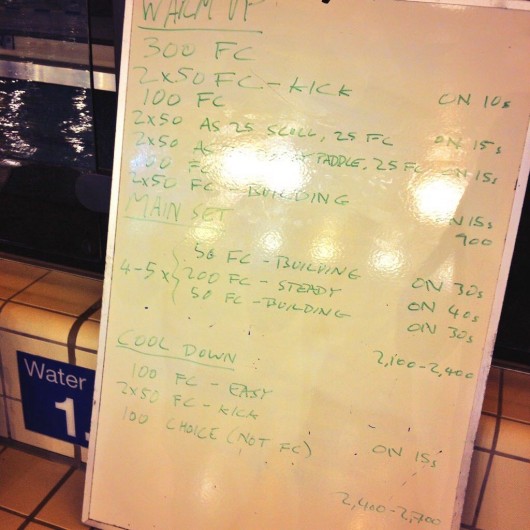 WARM UP
300 FC
2x50 FC - KICK ON 10s
100 FC
2x50 AS 25 SCULL, 25 FC ON 15s
2x50 AS PADDLE, 25 FC ON 15s
FC
2x50 FC - BUILDING ON 15s
900
MAIN SET
4-5 x { 50 FC - BUILDING ON 30s
200 FC - STEADY ON 40s
50 FC - BUILDING ON 30s
2,100-2,400
COOL DOWN
100 FC - EASY
2x50 FC - KICK
100 CHOICE (NOT FC) ON 15s
2,400-2,700
Water
1.